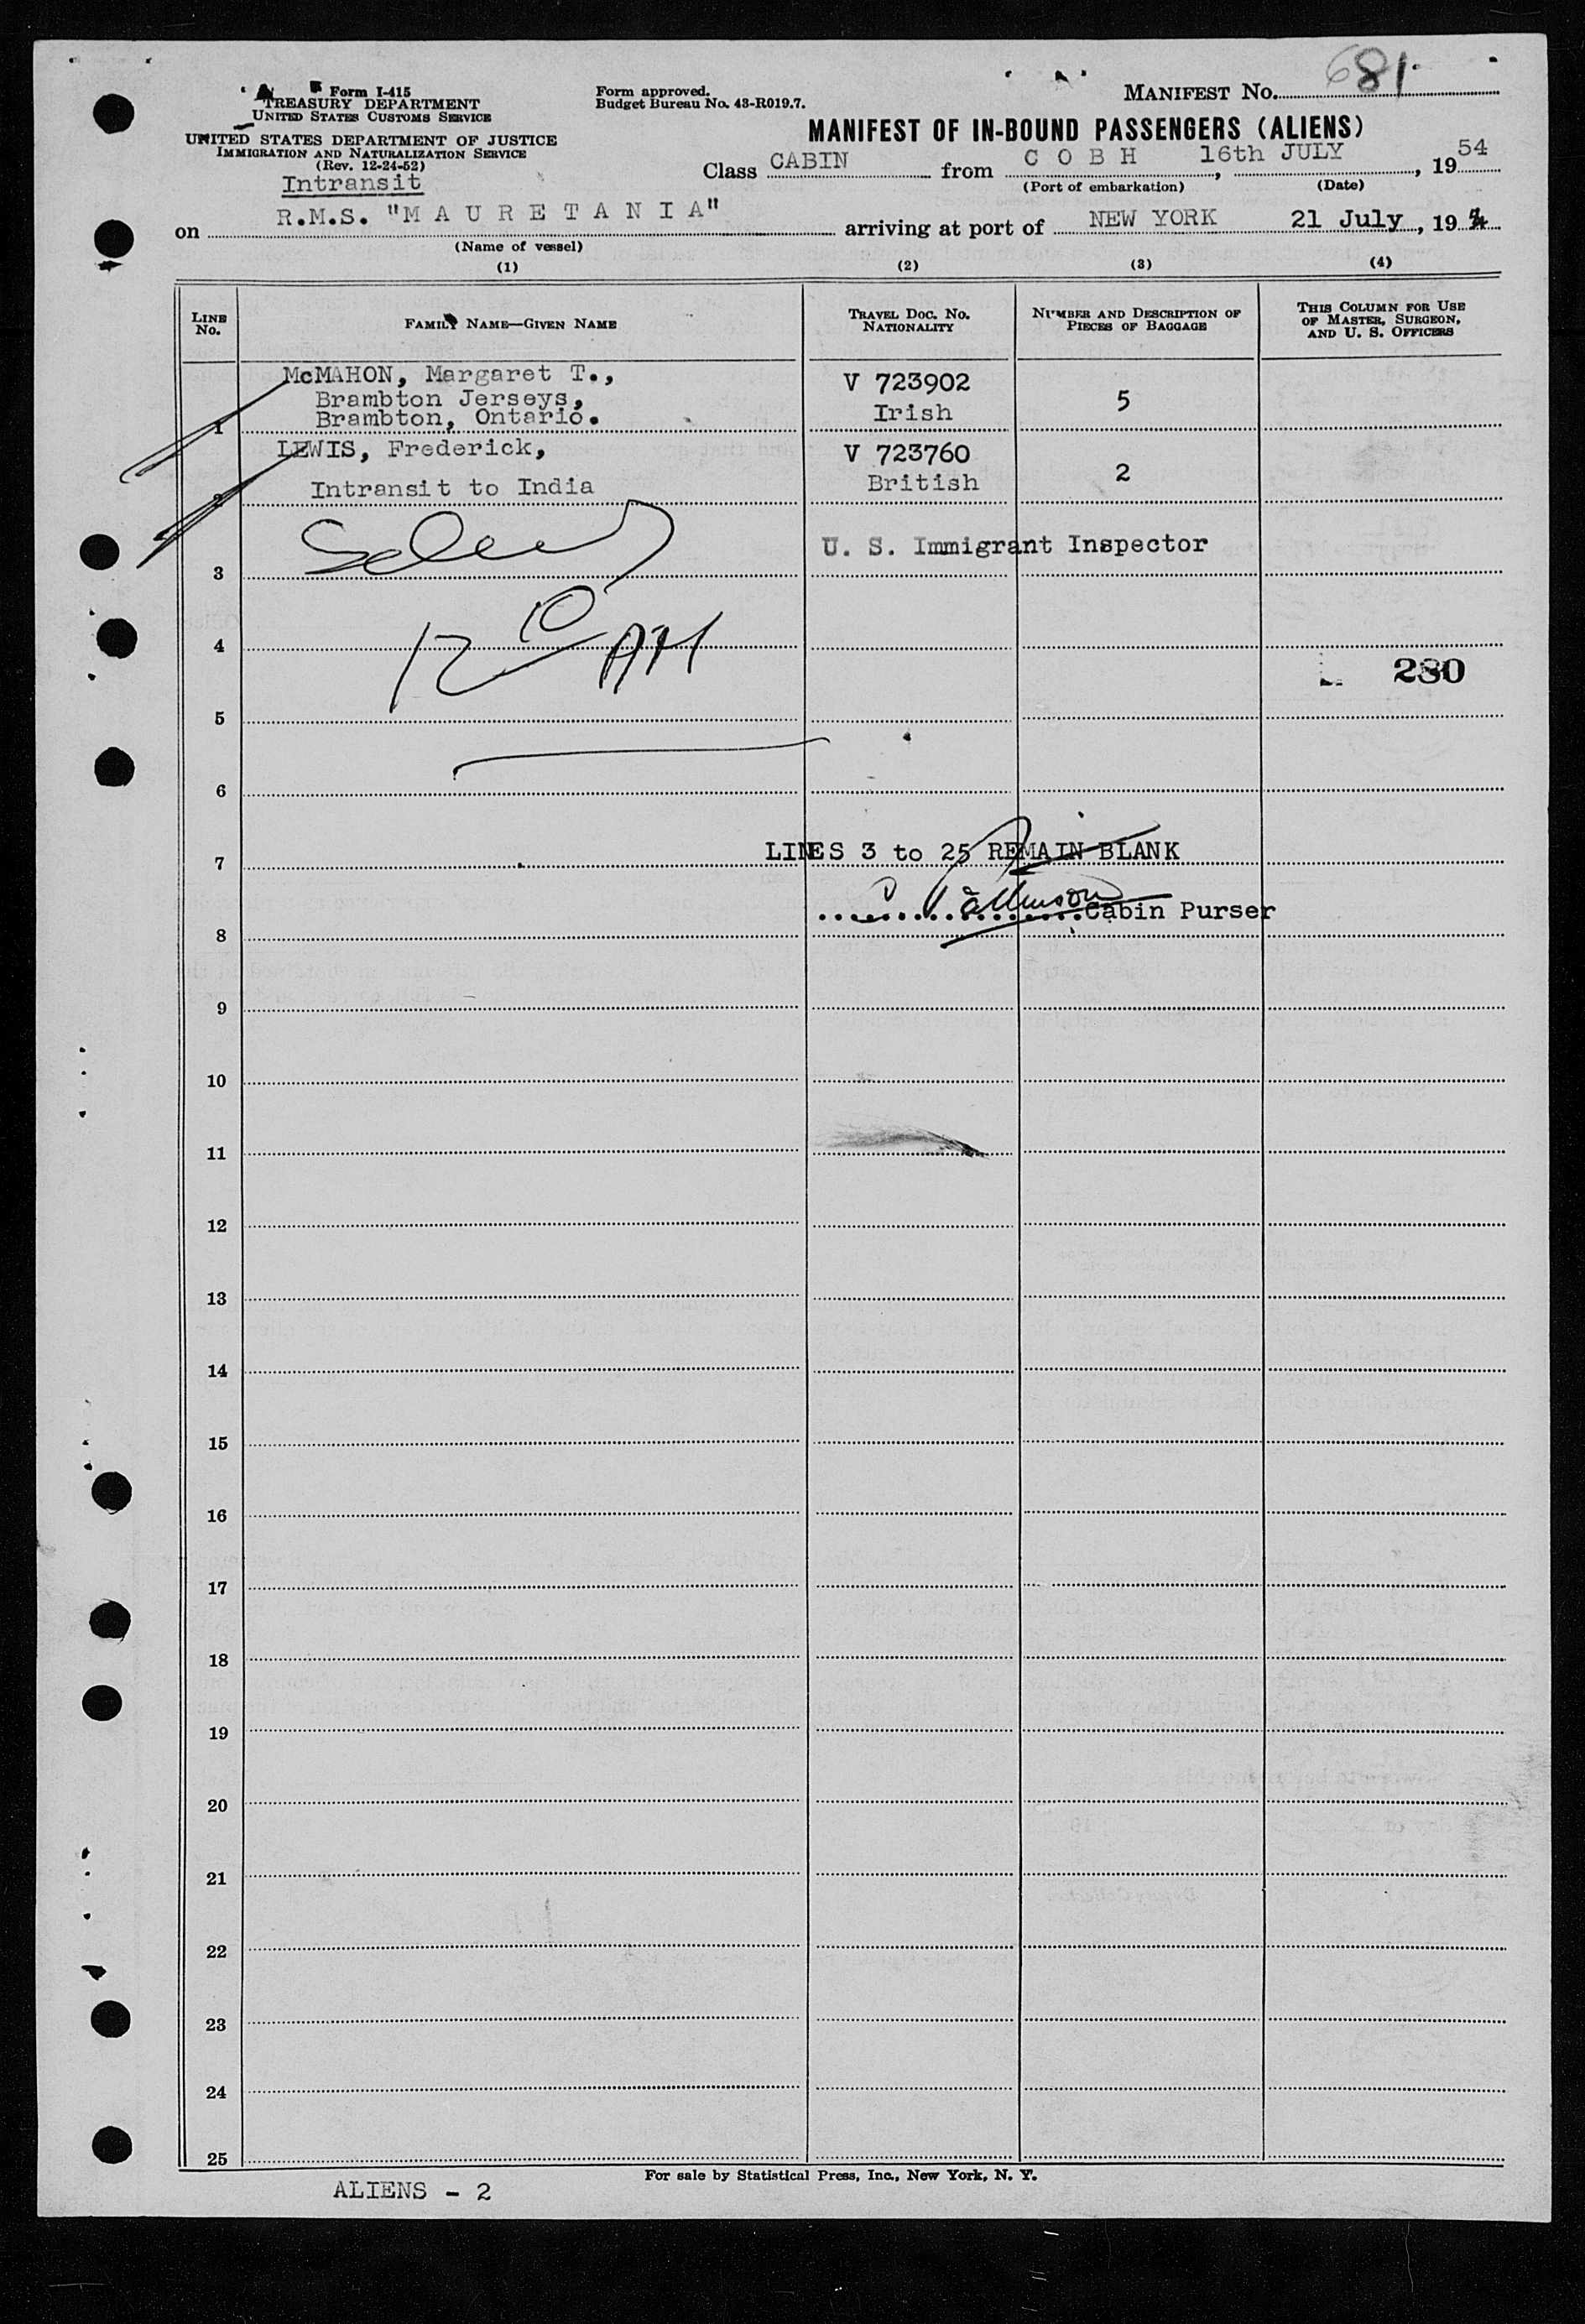 Form I-415
TREASURY DEPARTMENT
UNITED STATES CUSTOMS SERVICE
UNITED STATES DEPARTMENT OF JUSTICE
IMMIGRATION AND NATURALIZATION SERVICE
(Rev. 12-24-52)
Intransit
Form approved.
Budget Bureau No. 43-R019.7.
MANIFEST NO. 681
MANIFEST OF IN-BOUND PASSENGERS (ALIENS)
Class CABIN from C O B H , 16th JULY , 19 54
(Port of embarkation) (Date)
on R.M.S. "M A U R E T A N I A" arriving at port of NEW YORK 21 July , 19 54
(Name of vessel)
(1) (2) (3) (4)
LINE NO. FAMILY NAME—GIVEN NAME TRAVEL DOC. NO. NATIONALITY NUMBER AND DESCRIPTION OF PIECES OF BAGGAGE THIS COLUMN FOR USE OF MASTER, SURGEON, AND U. S. OFFICERS
McMAHON, Margaret T., V 723902
Brambton Jerseys, Irish 5
1 Brambton, Ontario.
LEWIS, Frederick, V 723760
2 Intransit to India British 2
U. S. Immigrant Inspector
3
12 10 AM
4
280
5
6
LINES 3 to 25 REMAIN BLANK
7
Cabin Purser
8
9
10
11
12
13
14
15
16
17
18
19
20
21
22
23
24
25
For sale by Statistical Press, Inc., New York, N. Y.
ALIENS - 2